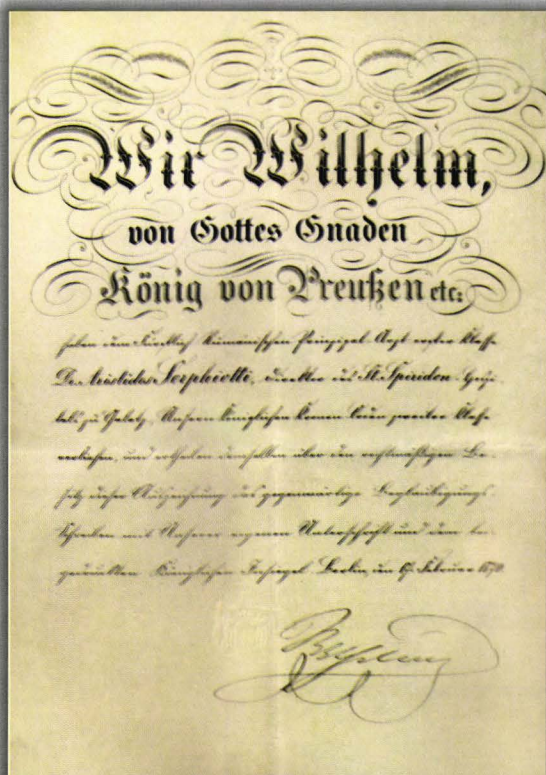 Wir Wilhelm,
von Gottes Gnaden
König von Preußen etc:
haben dem Fürstlich Rumänischen Prinzipal Arzt erster Klasse
Dr. Aristidas Serphiotti, Direktor des St. Spiridon Hospi-
tals zu Galatz, Unsern Königlichen Kronen Orden zweiter Klasse
verliehen, und ertheilen demselben über den rechtmäßigen Be-
sitz dieser Auszeichnung das gegenwärtige Beglaubigungs-
Schreiben mit Unserer eigenen Unterschrift und dem bei-
gedruckten Königlichen Insiegel. Berlin, den Februar
Wilhelm